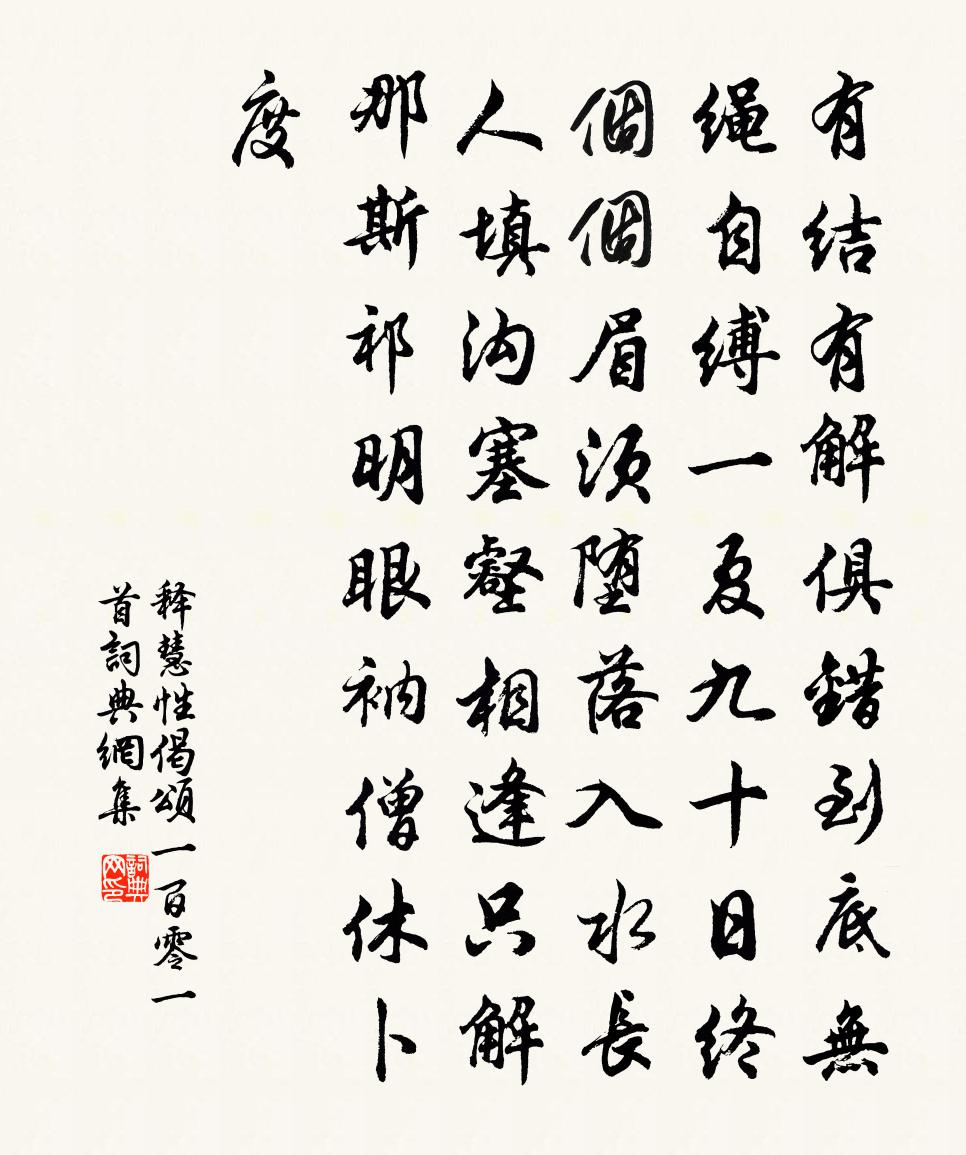 有结有解俱錯到底無
绳自缚一夏九十日终
個個眉须堕落入水長
人填沟塞壑相逢只解
那斯祁明眼衲僧休卜
度
释慧性偈頌一百零一
首詞典網集
詞典网印